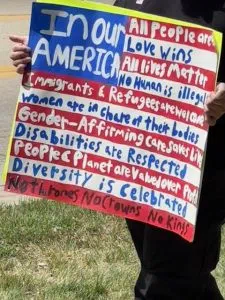 In Our
AMERICA
All People are
Love wins
All lives Matter
No Human is illegal
Immigrants & Refugees are welcome
Women are in charge of their bodies
Gender-Affirming Care Saves
Disabilities are Respected
People & Planet are Valued over
Diversity is Celebrated
No thrones No Crowns No Kings